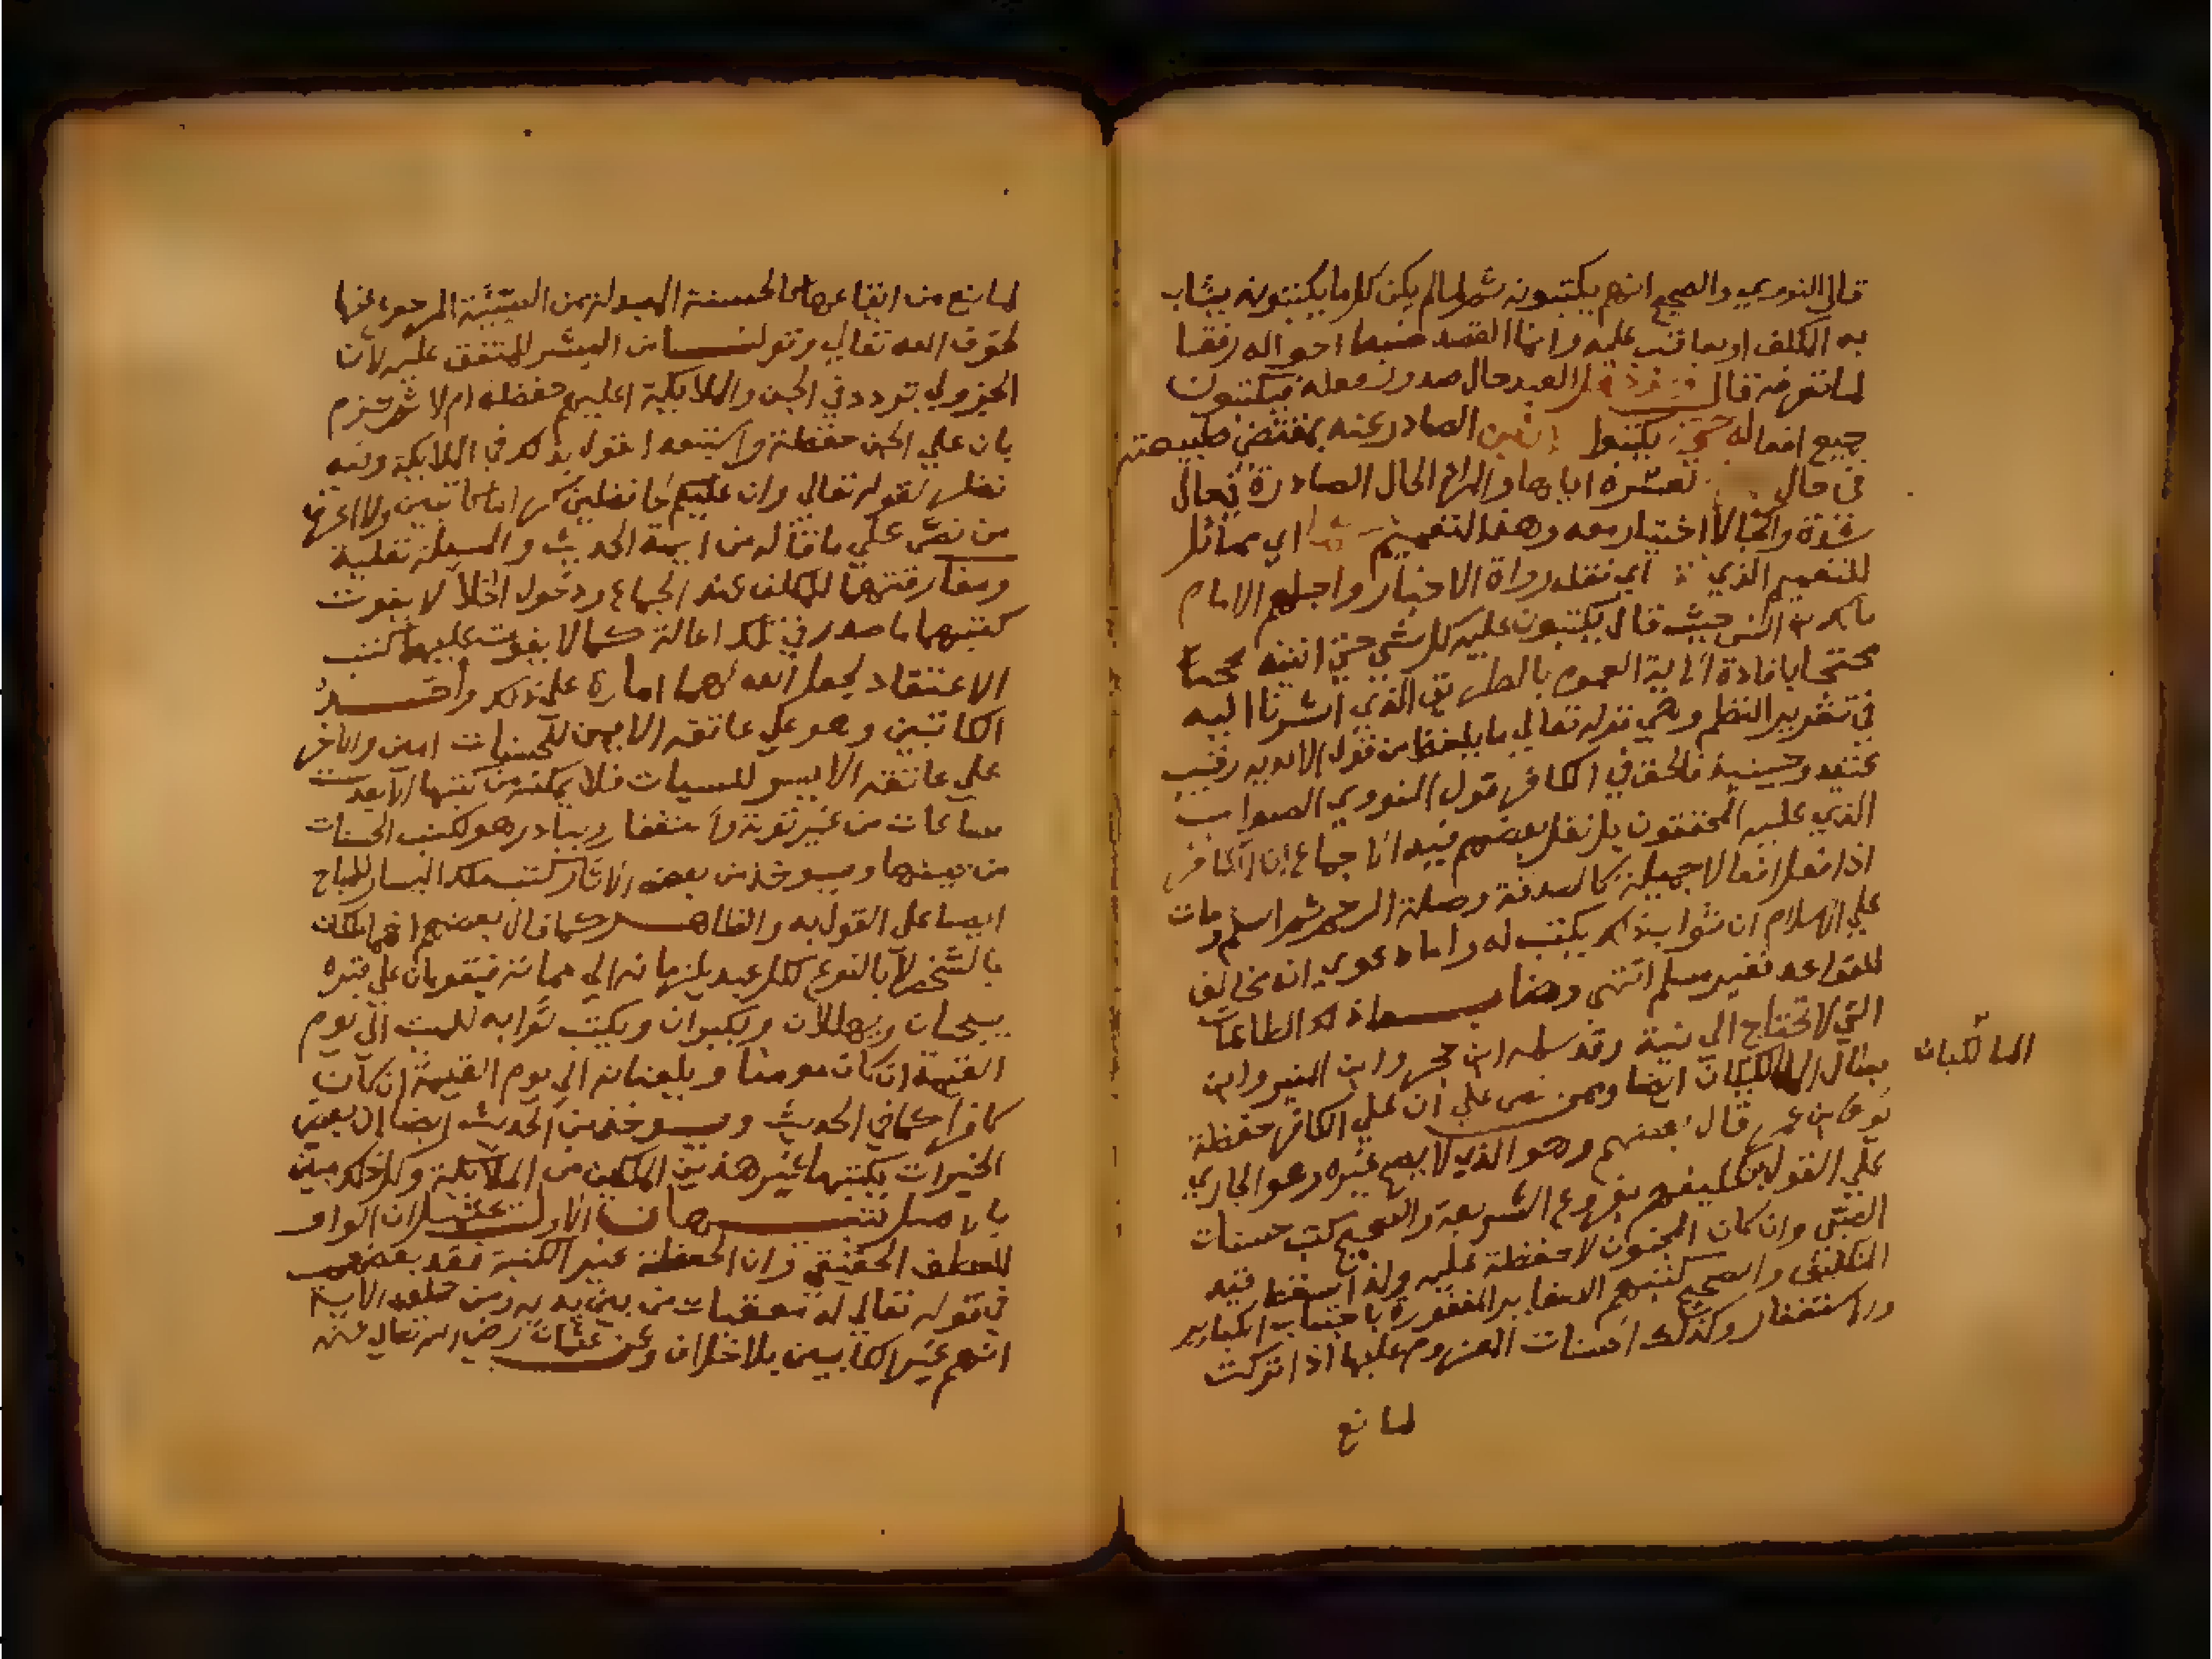 قال النووي والصحيح انهم يكتبونه ثم لما لم يكن كل ما يكتبونه يثاب
به المكلف او يعاقب عليه وانما القصد ضبط احواله رفقا
لما تقرر قال العبد حال صدور فعله فيكتبون
جميع افعاله حتى يكتبوا الانين الصادر عنه بمقتضى طبيعته
في حال المراد الحال الصادرة بحال
شدة والتجالا اختيار معه وهذا التعميم اي مماثل
للتعميم الذي اي نقله رواة الاخبار واجلهم الامام
مالك بن انس حيث قال يكتبون عليه كل شي حتى انينه محتجا
محتجا بافادة الاية العموم بالطريق الذي اشرنا اليه
في تقرير النظم وهي قوله تعالي ما يلفظ من قول الا لديه رقيب
عتيد وحينئذ فالحق في الكافر قول النووي الصواب
الذي عليه المحققون بل نقل بعضهم فيه الاجماع ان الكافر
اذا فعل افعالا جميلة كالصدقة وصلة الرحم ثم اسلم ومات
علي الاسلام ان ثواب ذلك يكتب له واما دعوي انه مخالف
للقواعد فغير مسلم انتهي وهذا ذلك الطاعات
التي لا تحتاج الي نية وقد سلمه ابن حجر وابن المنير وابن
بطال المالكيان ايضا وممن نص علي ان علي الكافر حفظة
يوسف بن عمر قال بعضهم وهو الذي لا يصح غيره وهو الجاري
علي القول بتكليفهم بفروع الشريعة والصحيح كتب حسنات
الصبي وان كان المجنون لا حفظة عليه ولذا اسقط فيه
التكليف والصحيح كتبهم الصغاير المغفورة باجتناب الكباير
والاستغفار وكذلك الحسنات المعزوم عليها اذا تركت
لمانع
المالكيان
لمانع من ايقاعها كالحسنة المبدلة من السيئة المرجوع عنها
لخوف الله تعالي وقولنا من البشر للمتفق عليه لان
الجزولي تردد في الجن والملايكة اعليهم حفظة ام لا ثم جزم
بان علي الجن حفظة واستبعد القول بذلك في الملايكة وفيه
نظر لقوله تعالي وان عليكم لحافظين كراما كاتبين ولا اعرف
من نص علي ما قاله من ايمة الحديث والمسيلة نقلية
ومفارقتهما للمكلف عند الجماع ودخول الخلا لا يفوت
كتبهما ما صدر في تلك الحالة كما لا يفوت عليهما كتب
الاعتقاد لجعل الله لهما امارة علي ذلك واحد
الكاتبين وهو علي عاتقه الايمن للحسنات امين والاخر
علي عاتقه الايسر للسيات فلا يمكنه من كتبها الا بعد ست
ساعات من غير توبة او استغفار ويبادر هو لكتب الحسنات
من حينها ويوخذ من بعض الاثار كتب ملك اليسار للمباح
ايضا علي القول به والظاهر كما قال بعضهم انهما ملكان
بالشخص لا بالنوع لكل عبد يلزمانه الي مماته فيقومان علي قبره
يسبحان ويهللان ويكبران ويكتب ثوابه للميت الي يوم
القيمة ان كان مومنا ويلعنانه الي يوم القيمة ان كان
كافرا كما في الحديث ويوخذ من الحديث ايضا ان بعض
الخيرات يكتبها غير هذين الملكين من الملايكة وكل ذلك مبين
بالاصل تنبيهان الاول ان الواو
للعطف الحقيقي وان الحفظة غير الكتبة فقد بعضهم
في قوله تعالي له معقبات من بين يديه ومن خلفه الاية
انهم غير الكاتبين بلا خلاف وعن عثمان رضي الله تعالي عنه